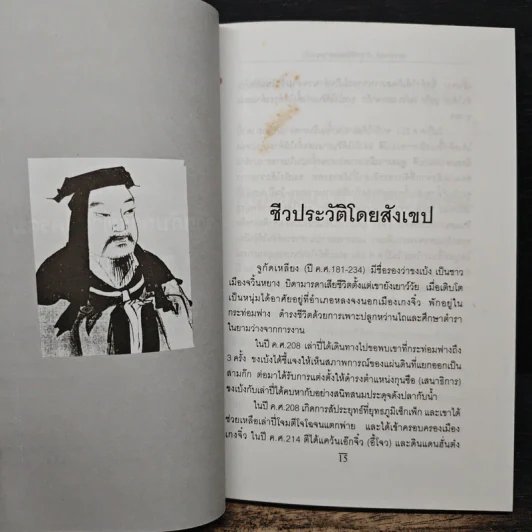 ชีวประวัติโดยสังเขป
จูกัดเหลียง (ปี ค.ศ.181-234) มีชื่อรองว่าขงเบ้ง เป็นชาว
เมืองจวิ้นหยาง บิดามารดาเสียชีวิตตั้งแต่เขายังเยาว์วัย เมื่อเติบโต
เป็นหนุ่มได้อาศัยอยู่ที่อำเภอหลงจงนอกเมืองเกงจิ๋ว พักอยู่ใน
กระท่อมฟาง ดำรงชีวิตด้วยการเพาะปลูกหว่านไถและศึกษาตำรา
ในยามว่างจากการงาน
ในปี ค.ศ.208 เล่าปี่ได้เดินทางไปขอพบเขาที่กระท่อมฟางถึง
3 ครั้ง ขงเบ้งได้ชี้แจงให้เห็นสภาพการณ์ของแผ่นดินที่แยกออกเป็น
สามก๊ก ต่อมาได้รับการแต่งตั้งให้ดำรงตำแหน่งกุนซือ (เสนาธิการ)
ขงเบ้งกับเล่าปี่ได้คบหากับอย่างสนิทสนมประดุจดังปลากับน้ำ
ในปี ค.ศ.208 เกิดการสัประยุทธ์ที่ยุทธภูมิเซ็กเพ็ก และเขาได้
ช่วยเหลือเล่าปี่โจมตีโจโฉจนแตกพ่าย และได้เข้าครอบครองเมือง
เกงจิ๋ว ในปี ค.ศ.214 ตีได้แคว้นเอ๊กจิ๋ว (อี้โจว) และดินแดนฮั่นต๋ง
15